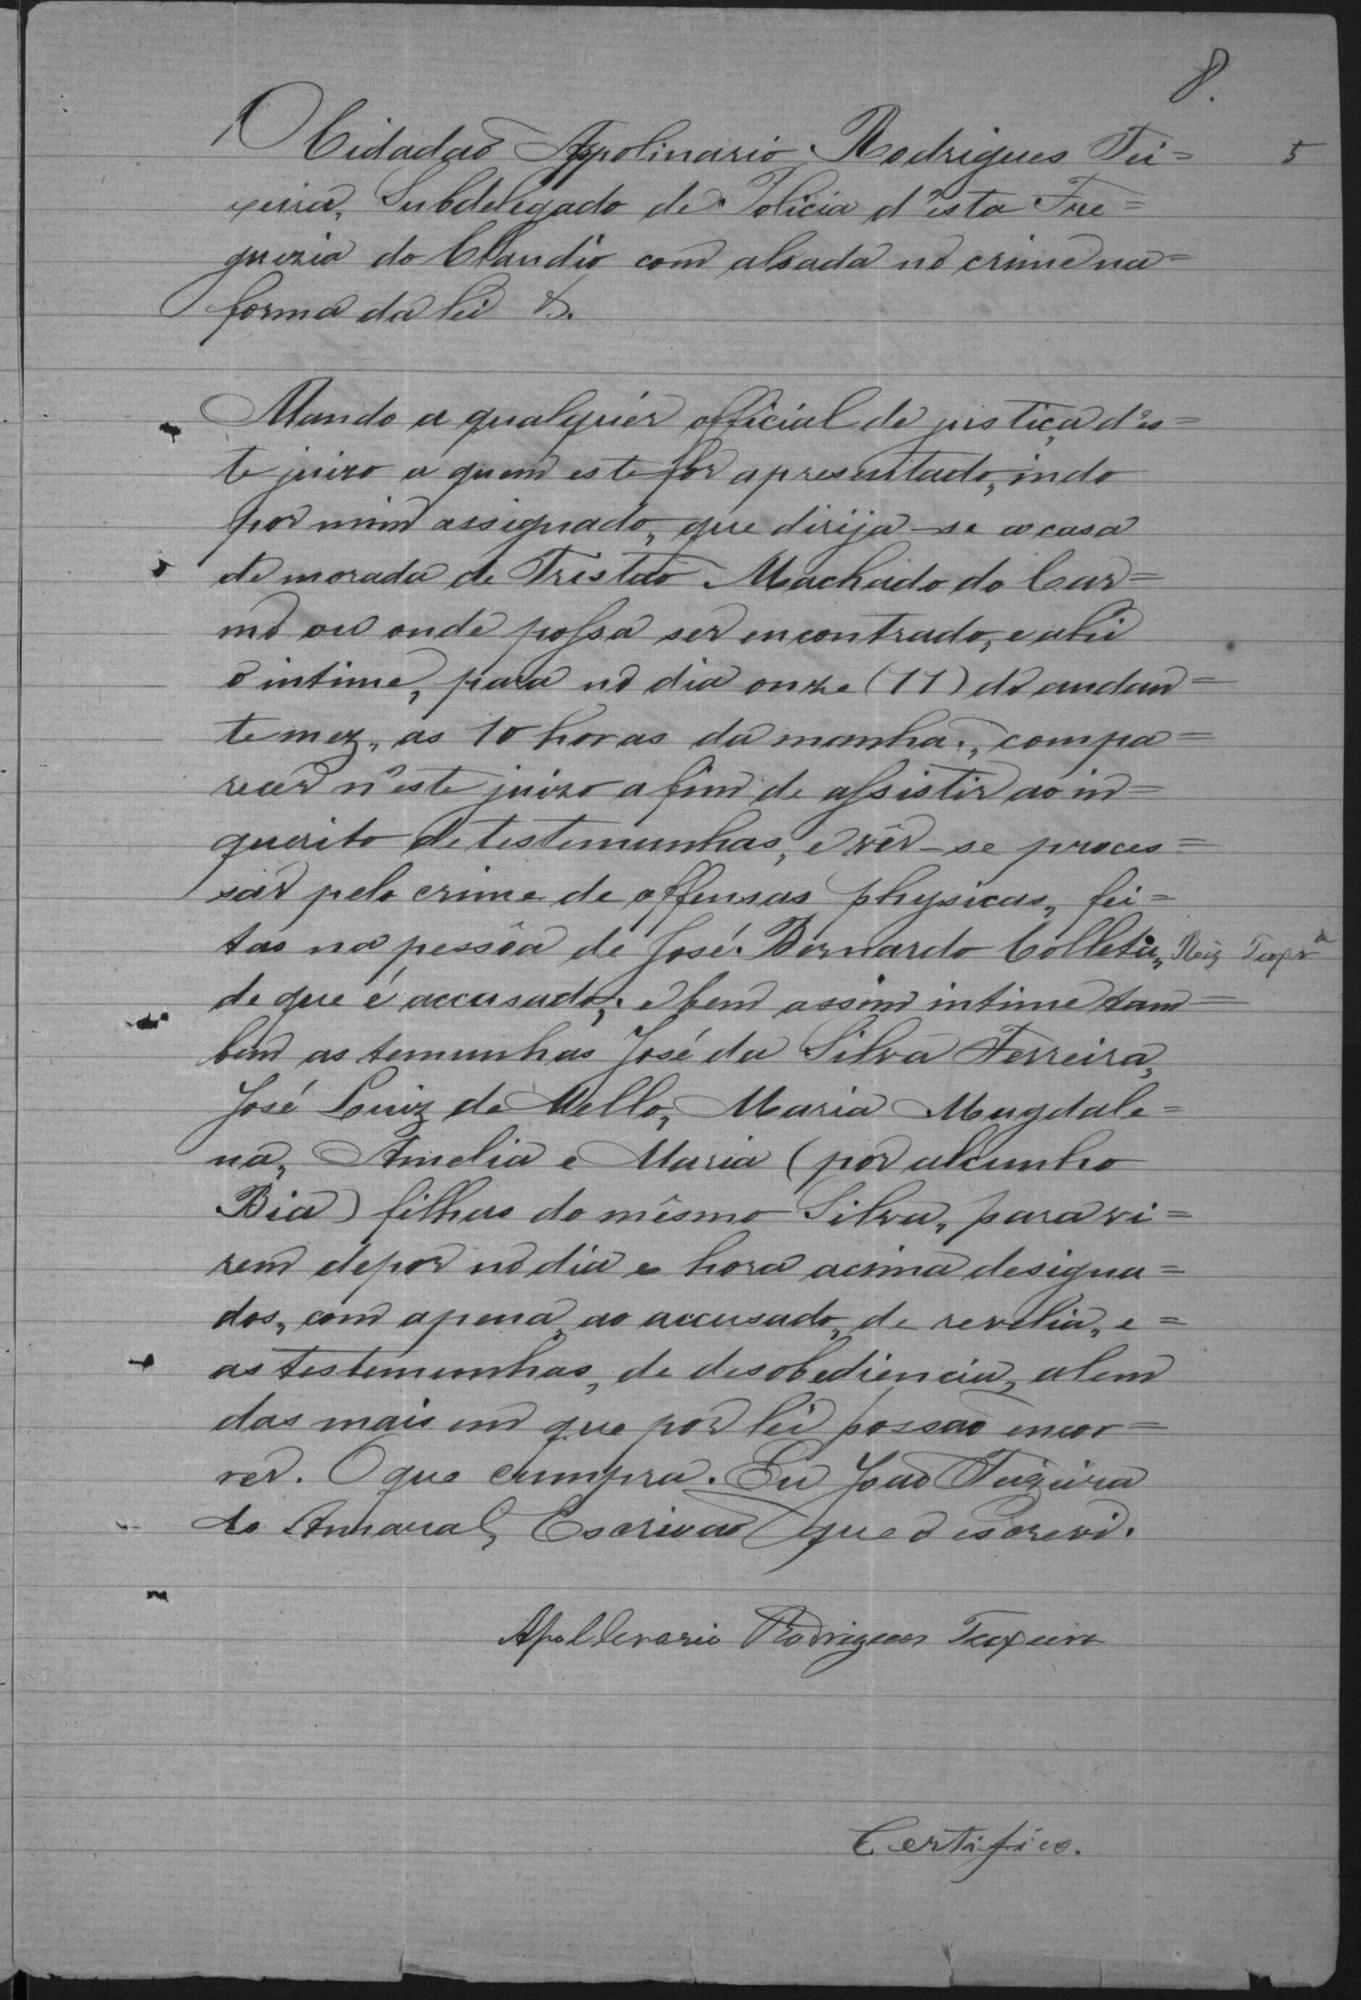 8.
5
O Cidadaõ Appolinario Rodrigues Tei=
xeira, Subdelegado de Policia d'esta Fre=
guezia do Claudio com alsada no crime na=
forma da lei &.
Mando a qualquér official de justiça d'es=
te juizo a quem este for apresentado, indo
por mim assignado, que dirija-se a casa
de morada de Tristaõ Machado do Car=
mo ou onde possa ser encontrado, e ahi
o intime, para no dia onze (11) do andan=
te mez, as 10 horas da manhã, compa=
recer n'este juizo a fim de assistir ao in=
querito de testemunhas, e vêr-se proces=
sar pelo crime de offensas physicas, fei=
tas na pessôa de José Bernardo Colleta,
de que é accusado; e bem assim intime tam=
bem as temunhas José da Silva Ferreira,
José Luiz de Mello, Maria Magdale=
na, Amelia e Maria (por alcunho
Bia) filhas do mêsmo Silva, para vi=
rem depor no dia e hora acima designa=
dos, com apena, ao accusado, de revelia, e=
as testemunhas, de desobediencia, alem
das mais em que por lei possaõ encor=
rer. O que cumpra. Eu Joaõ Teixeira
do Amaral, Escrivaõ que o escrevi.
Apollenario Rodrigues Teixeira
Certifico.